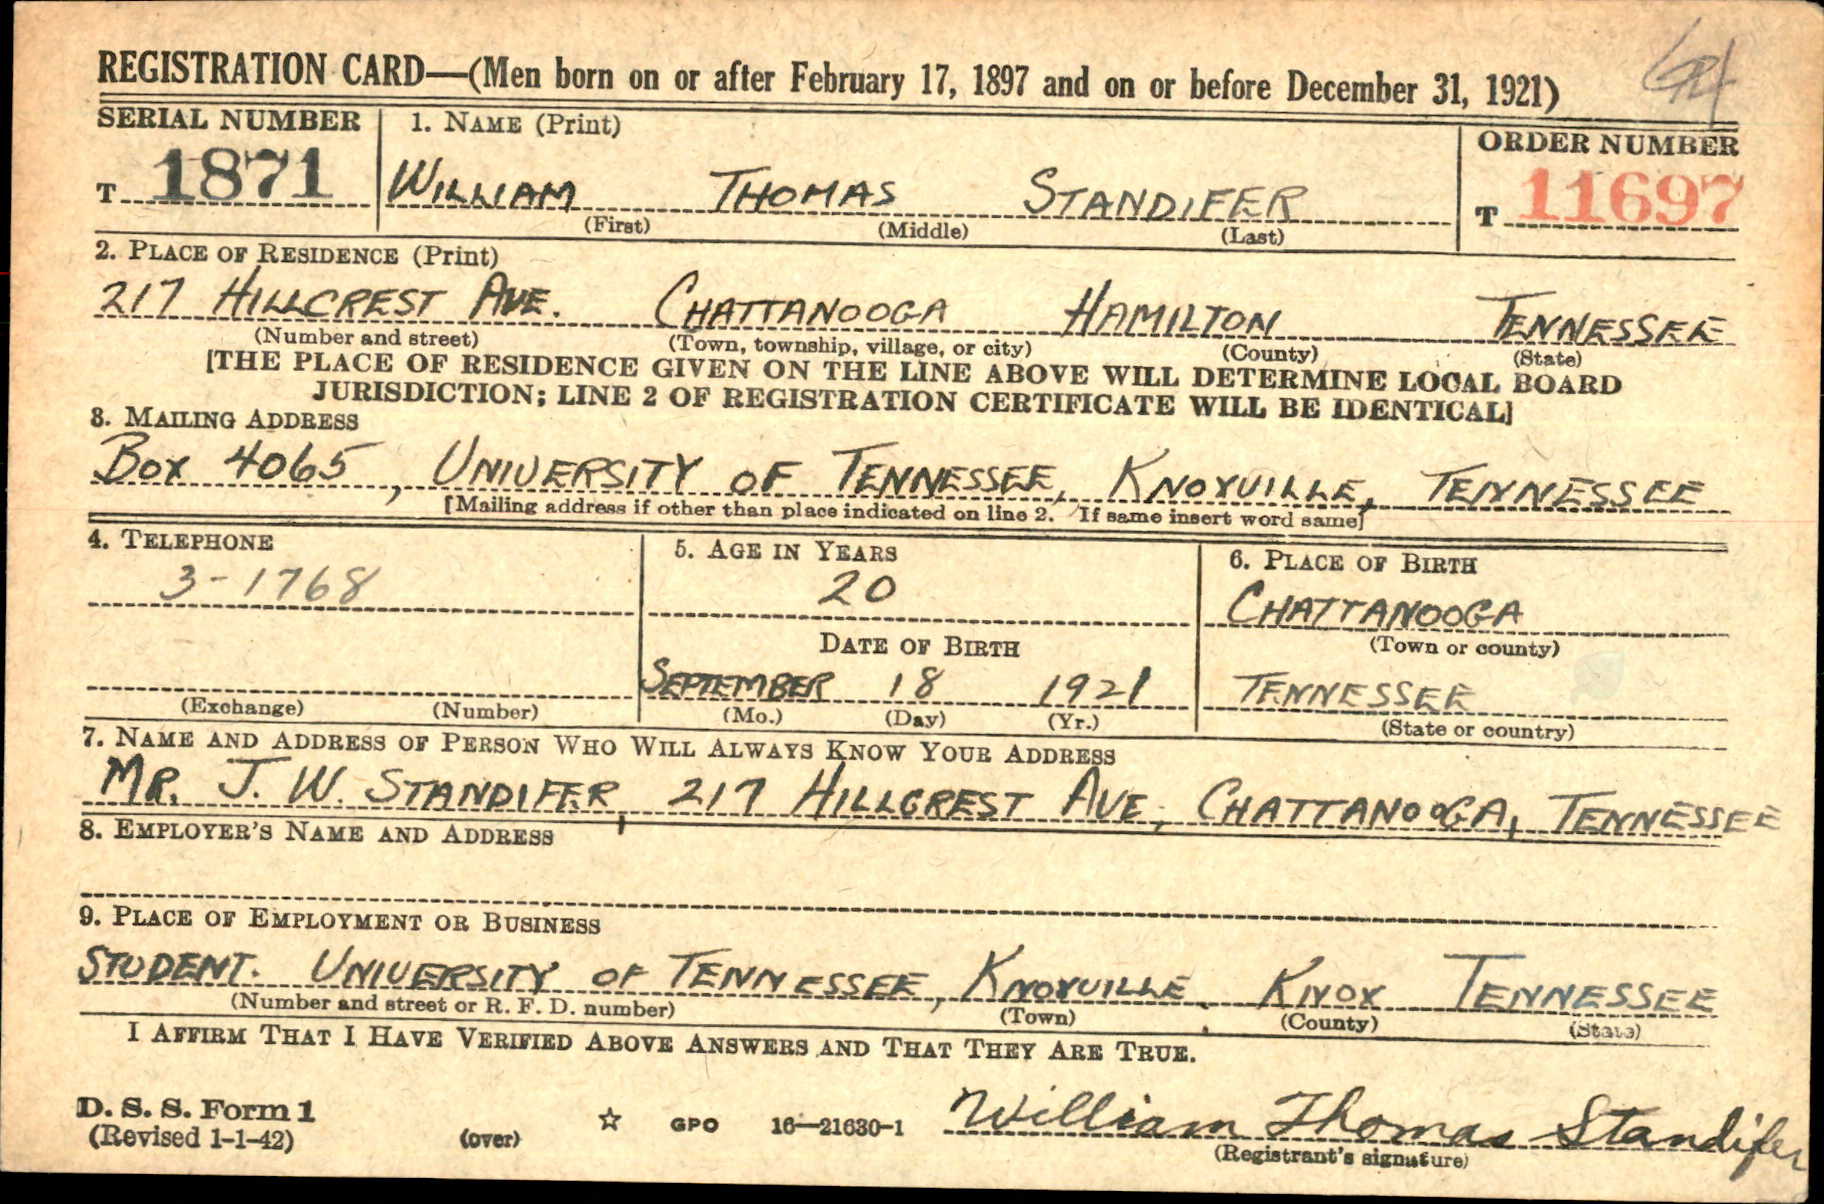 REGISTRATION CARD—(Men born on or after February 17, 1897 and on or before December 31, 1921)
SERIAL NUMBER 1. NAME (Print) ORDER NUMBER
T 1871 WILLIAM THOMAS STANDIFER T 11697
(First) (Middle) (Last)
2. PLACE OF RESIDENCE (Print)
217 HILLCREST AVE. CHATTANOOGA HAMILTON TENNESSEE
(Number and street) (Town, township, village, or city) (County) (State)
[THE PLACE OF RESIDENCE GIVEN ON THE LINE ABOVE WILL DETERMINE LOCAL BOARD
JURISDICTION; LINE 2 OF REGISTRATION CERTIFICATE WILL BE IDENTICAL]
3. MAILING ADDRESS
BOX 4065, UNIVERSITY OF TENNESSEE, KNOXVILLE, TENNESSEE
[Mailing address if other than place indicated on line 2. If same insert word same]
4. TELEPHONE 5. AGE IN YEARS 6. PLACE OF BIRTH
3-1768 20 CHATTANOOGA
DATE OF BIRTH (Town or county)
SEPTEMBER 18 1921 TENNESSEE
(Exchange) (Number) (Mo.) (Day) (Yr.) (State or country)
7. NAME AND ADDRESS OF PERSON WHO WILL ALWAYS KNOW YOUR ADDRESS
MR. J. W. STANDIFER, 217 HILLCREST AVE, CHATTANOOGA, TENNESSEE
8. EMPLOYER'S NAME AND ADDRESS
9. PLACE OF EMPLOYMENT OR BUSINESS
STUDENT. UNIVERSITY OF TENNESSEE, KNOXVILLE, KNOX TENNESSEE
(Number and street or R. F. D. number) (Town) (County) (State)
I AFFIRM THAT I HAVE VERIFIED ABOVE ANSWERS AND THAT THEY ARE TRUE.
D. S. S. Form 1
(Revised 1-1-42) (over) ☆ GPO 16—21630-1 William Thomas Standifer
(Registrant's signature)